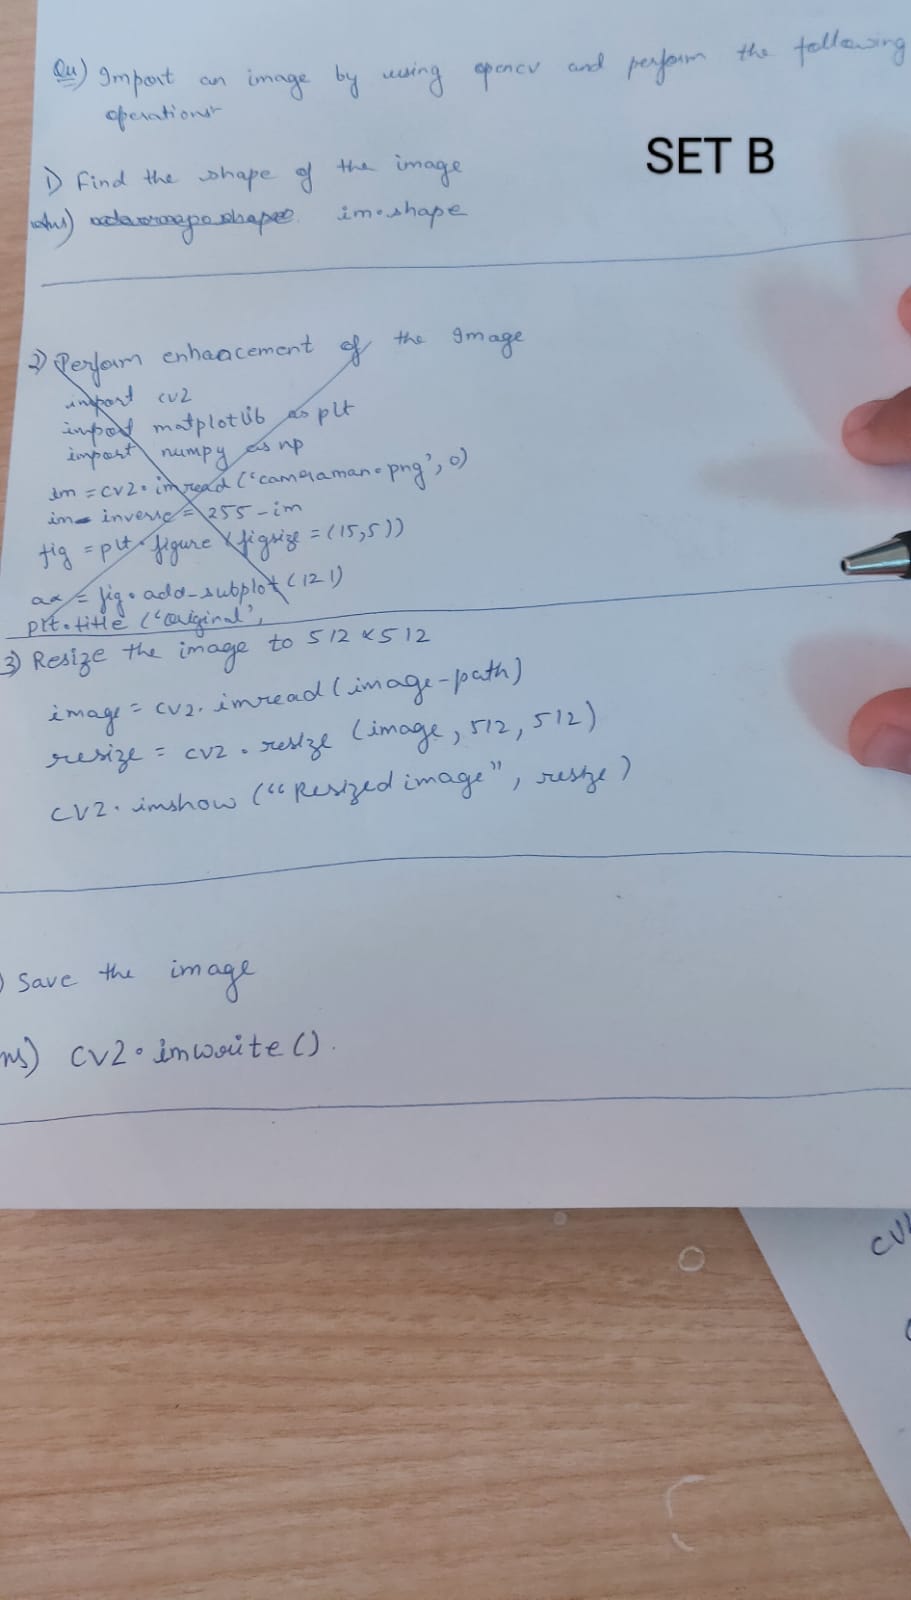 Qu) Import an image by using opencv and perform the following
operations
SET B
1) Find the shape of the image
Ans) im.shape
2) Perform enhancement of the Image
import cv2
import matplotlib as plt
import numpy as np
im = cv2.imread ("cameraman.png', 0)
im inverse = 255 - im
fig = plt.figure (figsize = (15,5))
ax = fig.add_subplot (121)
plt.title ("Original',
3) Resize the image to 512 x 512
image = cv2.imread (image-path)
resize = cv2.resize (image, 512, 512)
cv2.imshow ("Resized image", resize)
) Save the image
ns) cv2.imwrite ().